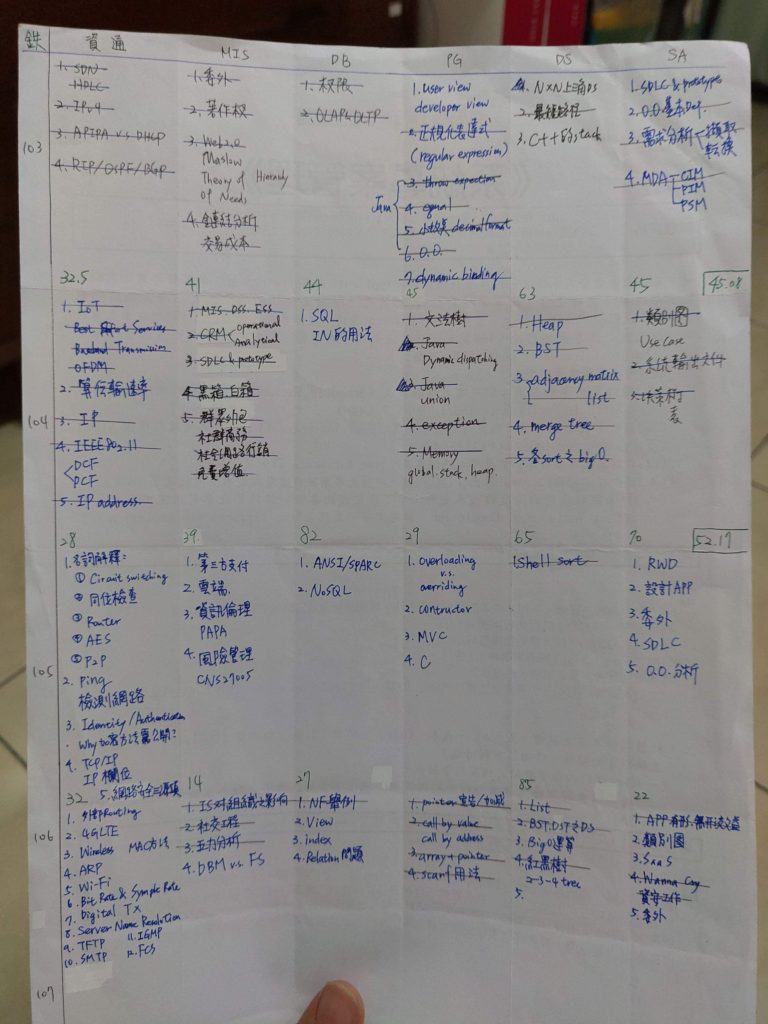 鉄 資通 MIS DB PG DS SA
103
1. SDN
HDLC
2. IPv4
3. APIPA v.s DHCP
4. RIP/OSPF/BGP
1. 委外
2. 著作权
3. Web2.0
Maslow
Theory of Hierarchy
of Needs
4. 分析
交易成本
1. 权限
2. OLAP&OLTP
1. user view
developer view
2. 正規化表達式
(regular expression)
Java
3. throw expection
4. equal
5. 小数点decimalformat
6. O.O.
7. dynamic binding
1. N×N上三角DS
2. 最短路徑
3. C++的stack
1. SDLC & prototype
2. O.O.基本Def.
3. 需求分析 擷取
轉換
4. MDA CIM
PIM
PSM
32.5 41 44 45 63 45 45.08
104
1. IoT
Best Effort Services
Baseband Transmission
OFDM
2. 算傳輸速率
3. IP
4. IEEE 802.11
DCF
PCF
5. IP address
1. MIS. DSS. ESS
2. CRM Operational
Analytical
3. SDLC & prototype
4. 黑箱.白箱
5. 群眾外包
社群商務
社會網路行銷
免費增值
1. SQL
IN的用法
1. 文法樹
2. Java
Dynamic dispatching
3. Java
union
4. exception
5. Memory
global. stack, heap.
1. Heap
2. BST
3. adjacency matrix
list
4. merge tree
5. 各sort之bigO
1. 類別圖
Use Case
2. 系統輸出文件
3. 決策樹
表
28 39. 82 29 65 70 52.17
105
1. 名詞解釋:
① Circuit switching
② 同位檢查
③ Router
④ AES
⑤ P2P
2. Ping
檢測網路
3. Identity/Authentication
. Why 加密方法要公開?
4. TCP/IP
IP欄位
5. 網路安全
1. 第三方支付
2. 雲端
3. 資訊倫理
PAPA
4. 風險管理
CNS27005
1. ANSI/SPARC
2. NoSQL
1. overloading
v.s.
overriding
2. contructor
3. MVC
4. C
1. Shell sort
1. RWD
2. 設計APP
3. 委外
4. SDLC
5. O.O.分析
32 14 27 85 22
106
1. Routing
2. 4GLTE
3. Wireless MAC方法
4. ARP
5. Wi-Fi
6. Bit Rate & Symple Rate
7. Digital Tx
8. Server Name Resolution
9. TFTP 11. IGMP
10. SMTP 12. FCS
1. IS对組織之影响
2. 社交工程
3. 五力分析
4. DBM v.s. FS
1. NF舉例
2. View
3. index
4. Relation問題
1. pointer 宣告/加減
2. call by value
call by address
3. array + pointer
4. scanf用法
1. List
2. BST.DST之DS
3. BigO運算
4. 紅黑樹
2-3-4 tree
5.
1. APP有形.無形效益
2. 類別圖
3. SaaS
4. Wanna Cry
資安工作
5. 委外
107